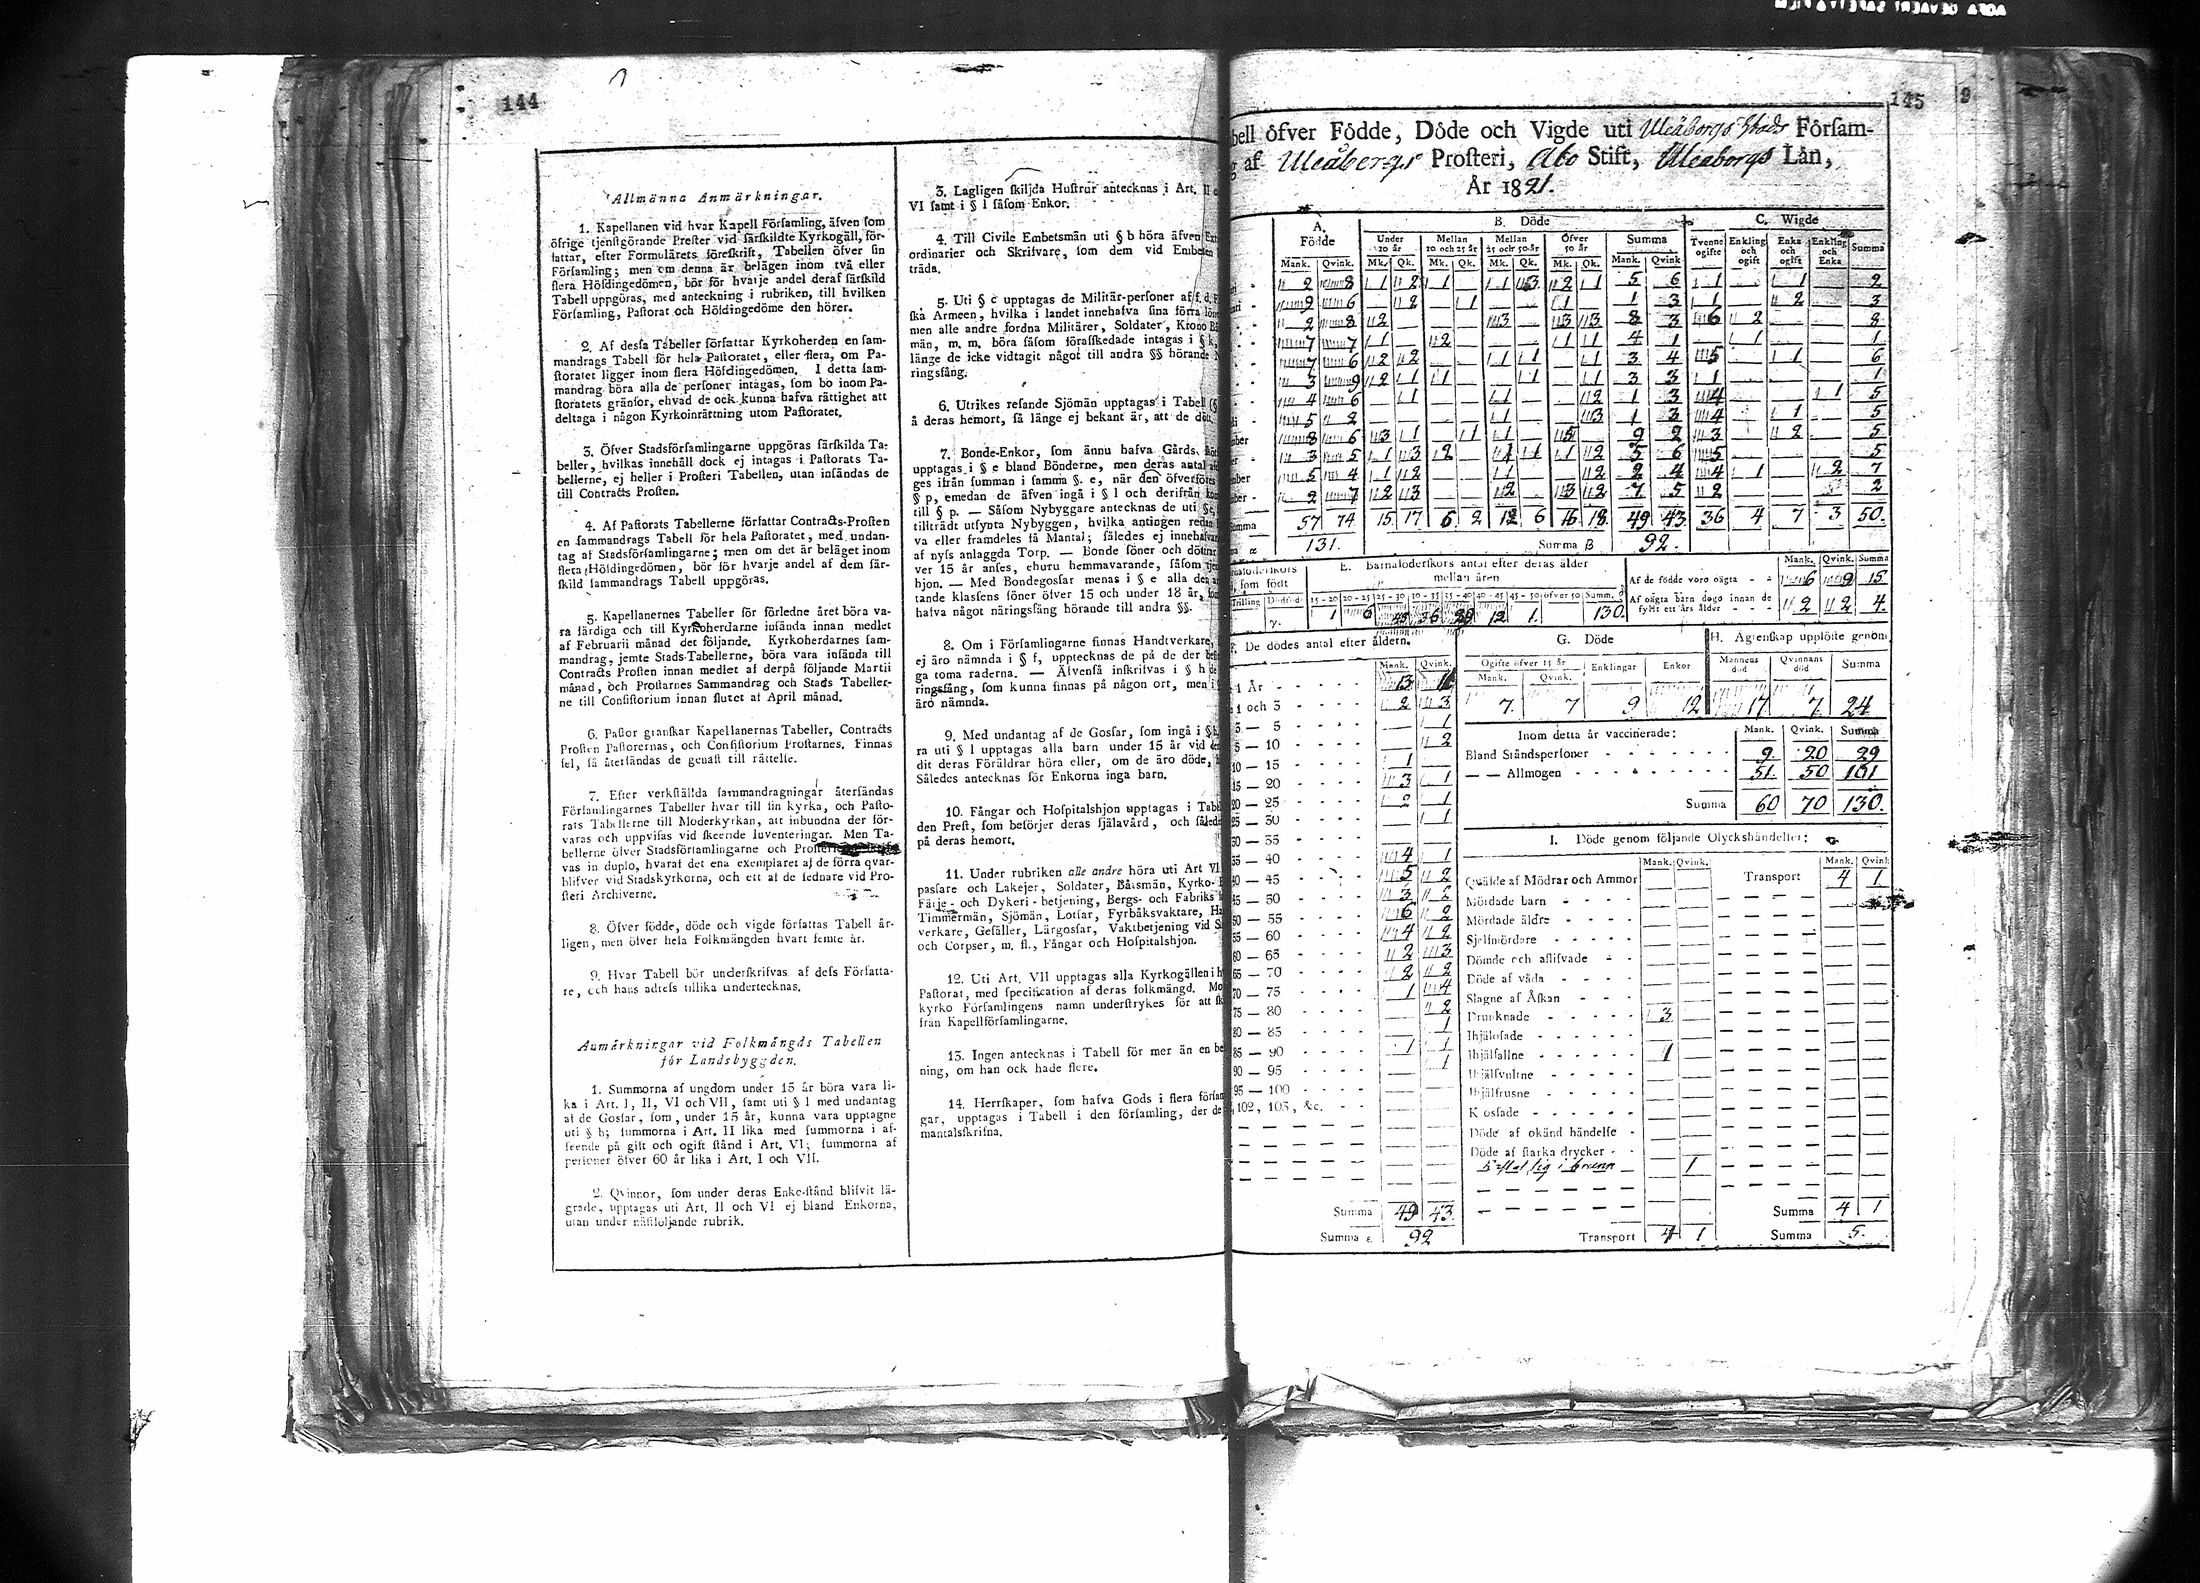 144
Allmänna Anmärkningar.
1. Kapellanen vid hvar Kapell Församling, äfven som
öfrige tjenstgörande Prester vid särskildte Kyrkogäll, för-
fattar, efter Formulärets föreskrift, Tabellen öfver sin
Församling; men om denna är belägen inom två eller
flera Höfdingedömen, bör för hvarje andel deraf särskild
Tabell uppgöras, med anteckning i rubriken, till hvilken
Församling, Pastorat och Höfdingedöme den hörer.
2. Af dessa Tabeller författar Kyrkoherden en sam-
mandrags Tabell för hela Pastoratet, eller flera, om Pa-
storatet ligger inom flera Höfdingedömen. I detta sam-
mandrag böra alla de personer intagas, som bo inom Pa-
storatets gränsor, ehvad de ock kunna hafva rättighet att
deltaga i någon Kyrkoinrättning utom Pastoratet.
3. Öfver Stadsförsamlingarne uppgöras särskilda Ta-
beller, hvilkas innehåll dock ej intagas i Pastorats Ta-
bellerne, ej heller i Prosteri Tabellen, utan insändas de
till Contracts Prosten.
4. Af Pastorats Tabellerne författar Contracts-Prosten
en sammandrags Tabell för hela Pastoratet, med undan-
tag af Stadsförsamlingarne; men om det är beläget inom
flera Höfdingedömen, bör för hvarje andel af dem sär-
skild sammandrags Tabell uppgöras.
5. Kapellanernes Tabeller för förledne året böra va-
ra färdiga och till Kyrkoherdarne insända innan medlet
af Februarii månad det följande. Kyrkoherdarnes sam-
mandrag, jemte Stads-Tabellerne, böra vara insända till
Contracts Prosten innan medlet af derpå följande Martii
månad, och Prostarnes Sammandrag och Stads Tabeller-
ne till Consistorium innan slutet af April månad.
6. Pastor granskar Kapellanernas Tabeller, Contracts
Prosten Pastorernas, och Consistorium Prostarnes. Finnas
fel, så återsändas de genast till rättelse.
7. Efter verkställda sammandragningar återsändas
Församlingarnes Tabeller hvar till sin kyrka, och Pasto-
rats Tabellerne till Moderkyrkan, att inbundna der för-
varas och uppvisas vid skeende Inventeringar. Men Ta-
bellerne öfver Stadsförsamlingarne och
vas in duplo, hvaraf det ena exemplaret af de förra qvar-
blifver vid Stadskyrkorna, och ett af de sednare vid Pro-
steri Archiverne.
8. Öfver födde, döde och vigde författas Tabell år-
ligen, men öfver hela Folkmängden hvart femte år.
9. Hvar Tabell bör underskrifvas af dess Författa-
re, och hans adress tillika undertecknas.
Anmärkningar vid Folkmängds Tabellen
för Landsbyggden.
1. Summorna af ungdom under 15 år böra vara li-
ka i Art. I, II, VI och VII, samt uti § l med undantag
af de Gossar, som, under 15 år, kunna vara upptagne
uti § h; summorna i Art. II lika med summorna i af-
seende på gift och ogift stånd i Art. VI; summorna af
personer öfver 60 år lika i Art. I och VII.
2. Qvinnor, som under deras Enke-stånd blifvit lä-
grade, upptagas uti Art. II och VI ej bland Enkorna,
utan under nästföljande rubrik.
3. Lagligen skiljda Hustrur antecknas i Art. II
VI samt i § l såsom Enkor.
4. Till Civile Embetsmän uti § b höra äfven
ordinarier och Skrifvare, som dem vid
träda.
5. Uti § c upptagas de Militär-personer af f. d.
ska Armeen, hvilka i landet innehafva sina förra
men alle andre fordna Militärer, Soldater, Krono
män, m. m. böra såsom förafskedade intagas i § k,
länge de icke vidtagit något till andra §§ hörande
ringsfång.
6. Utrikes resande Sjömän upptagas i Tabell
å deras hemort, så länge ej bekant är, att de
7. Bonde-Enkor, som ännu hafva Gårds
upptagas i § e bland Bönderne, men deras antal
ges ifrån summan i samma §. e, när den
§ p, emedan de äfven ingå i § l och derifrån
till § p. — Såsom Nybyggare antecknas de uti
tillträdt utsynta Nybyggen, hvilka antingen
va eller framdeles få Mantal; således ej
af nyss anlaggda Torp. — Bonde söner och
ver 15 år anses, ehuru hemmavarande, såsom
hjon. — Med Bondegossar menas i § e alla
tande klassens söner öfver 15 och under 18 år,
hafva något näringsfång hörande till andra §§.
8. Om i Församlingarne finnas Handtverkare,
ej äro nämnda i § f, upptecknas de på de der
ga toma raderna. — Äfvenså inskrifvas i § h
ringsfång, som kunna finnas på någon ort, men
äro nämnda.
9. Med undantag af de Gossar, som ingå i §
ra uti § l upptagas alla barn under 15 år vid
dit deras Föräldrar höra eller, om de äro döde,
Således antecknas för Enkorna inga barn.
10. Fångar och Hospitalshjon upptagas i
den Prest, som besörjer deras själavård, och
på deras hemort.
11. Under rubriken alle andre höra uti Art VI
passare och Lakejer, Soldater, Båtsmän, Kyrko-
Färje- och Dykeri-betjening, Bergs- och Fabriks
Timmermän, Sjömän, Lotsar, Fyrbåksvaktare,
verkare, Gesäller, Lärgossar, Vaktbetjening vid
och Corpser, m. fl., Fångar och Hospitalshjon.
12. Uti Art. VII upptagas alla Kyrkogällen i
Pastorat, med specification af deras folkmängd.
kyrko Församlingens namn understrykes för att
från Kapellförsamlingarne.
13. Ingen antecknas i Tabell för mer än en
ning, om han ock hade flere.
14. Herrskaper, som hafva Gods i flera
gar, upptagas i Tabell i den församling, der de
mantalsskrifna.
145 9
bell öfver Födde, Döde och Vigde uti Uleåborgs Stads Försam-
af Uleåborgs Prosteri, Åbo Stift, Uleaborgs Län,
År 1821.
A. Födde B. Döde C. Wigde
Under 10 år Mellan 10 och 25 år Mellan 25 och 50 år Öfver 50 år Summa Tvenne ogifte Enkling och ogift Enka och ogift Enkling och Enka Summa
Mank. Qvink. Mk. Qk. Mk. Qk. Mk. Qk. Mk. Qk. Mank. Qvink
2 8 1 2 1 — 1 3 2 1 5 6 1 — 1 — 2
9 6 — 2 — 1 — — 1 — 1 3 1 — 2 — 3
2 8 2 — — — 3 — 3 3 8 3 6 2 — — 8
7 7 1 — 2 — — — 1 1 4 1 — 1 — — 1
7 6 2 2 — — 1 1 — 1 3 4 5 — 1 — 6
3 9 2 1 1 — — 1 — 1 3 3 1 — — — 1
4 6 — 1 — — 1 — — 2 1 3 4 — — 1 5
5 2 — — — — 1 — — 3 1 3 4 — 1 — 5
8 6 3 1 — 1 1 — 5 — 9 2 3 — 2 — 5
3 5 1 3 2 — 1 1 1 2 5 6 5 — — — 5
5 4 1 2 — — — — — 2 2 4 4 1 — 2 7
2 7 2 3 — — 2 — 3 2 7 5 2 — — — 2
Summa 57 74 15 17 6 2 12 6 16 18 49 43 36 4 7 3 50.
131. Summa B 92.
E. Barnaföderskors antal efter deras ålder
mellan åren
15-20 20-25 25-30 30-35 35-40 40-45 45-50 öfver 50 Summ.
1 6 45 36 29 12 1. 130.
Mank. Qvink. Summa
Af de födde voro oägta 6 9 15
Af oägta barn dogo innan de
fyllt ett års ålder 2 2 4.
F. De dödes antal efter åldern.
Mank. Qvink.
1 År 13 16
1 och 3 2 3
3 — 5 1
5 — 10 2
10 — 15 1
15 — 20 3 1
20 — 25 2 1
25 — 30 1
30 — 35
35 — 40 4 1
40 — 45 5 2
45 — 50 3 2
50 — 55 6 2
55 — 60 4 2
60 — 65 2 3
65 — 70 2 2
70 — 75 1 4
75 — 80 2
80 — 85 1
85 — 90 1 1
90 — 95 1
95 — 100
102, 105, &c.
Summa 49 43.
Summa ε. 92
G. Döde
Ogifte öfver 15 år Enklingar Enkor
Mank. Qvink.
7. 7 9 12
H. Ägtenskap upplöste genom
Mannens död Qvinnans död Summa
17 7. 24
Inom detta år vaccinerade: Mank. Qvink. Summa
Bland Ståndspersoner 9. 20 29
— — Allmogen 51. 50 101
Summa 60 70 130.
I. Döde genom följande Olyckshändelser:
Mank. Qvink. Mank. Qvink
Qväfde af Mödrar och Ammor Transport 4 1
Mördade barn
Mördade äldre
Sjelfmördare
Dömde och aflifvade
Döde af våda
Slagne af Åskan
Drunknade 3
Ihjälosade
Ihjälfallne 1
Ihjälsvultne
Ihjälfrusne
Krossade
Döde af okänd händelse
Döde af starka drycker
i brunn 1
Summa 4 1
Transport 4 1 Summa 5.